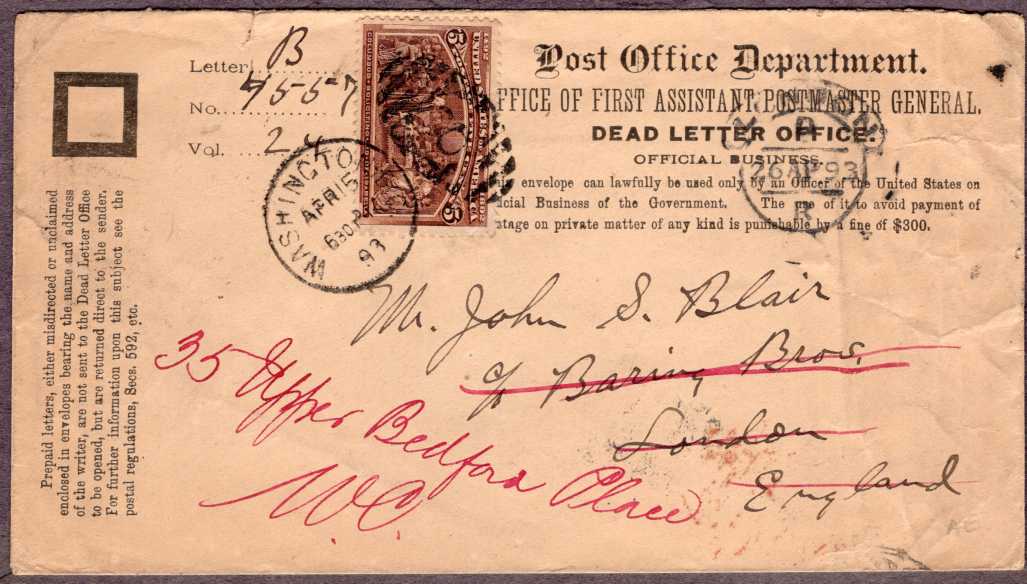 Letter B
No. 4557
Vol. 24
Post Office Department.
OFFICE OF FIRST ASSISTANT POSTMASTER GENERAL.
DEAD LETTER OFFICE.
OFFICIAL BUSINESS.
envelope can lawfully be used only by an Officer of the United States on
Business of the Government. The use of it to avoid payment of
on private matter of any kind is punishable by a fine of $300.
WASHINGTON
APR 15
630P
93
26 AP 93
Mr. John S. Blair
c/o Baring Bros.
London
England
35 Upper Bedford Place
W.C.
Prepaid letters, either misdirected or unclaimed
enclosed in envelopes bearing the name and address
of the writer, are not sent to the Dead Letter Office
to be opened, but are returned direct to the sender.
For further information upon this subject see the
postal regulations, Secs. 592, etc.
AE